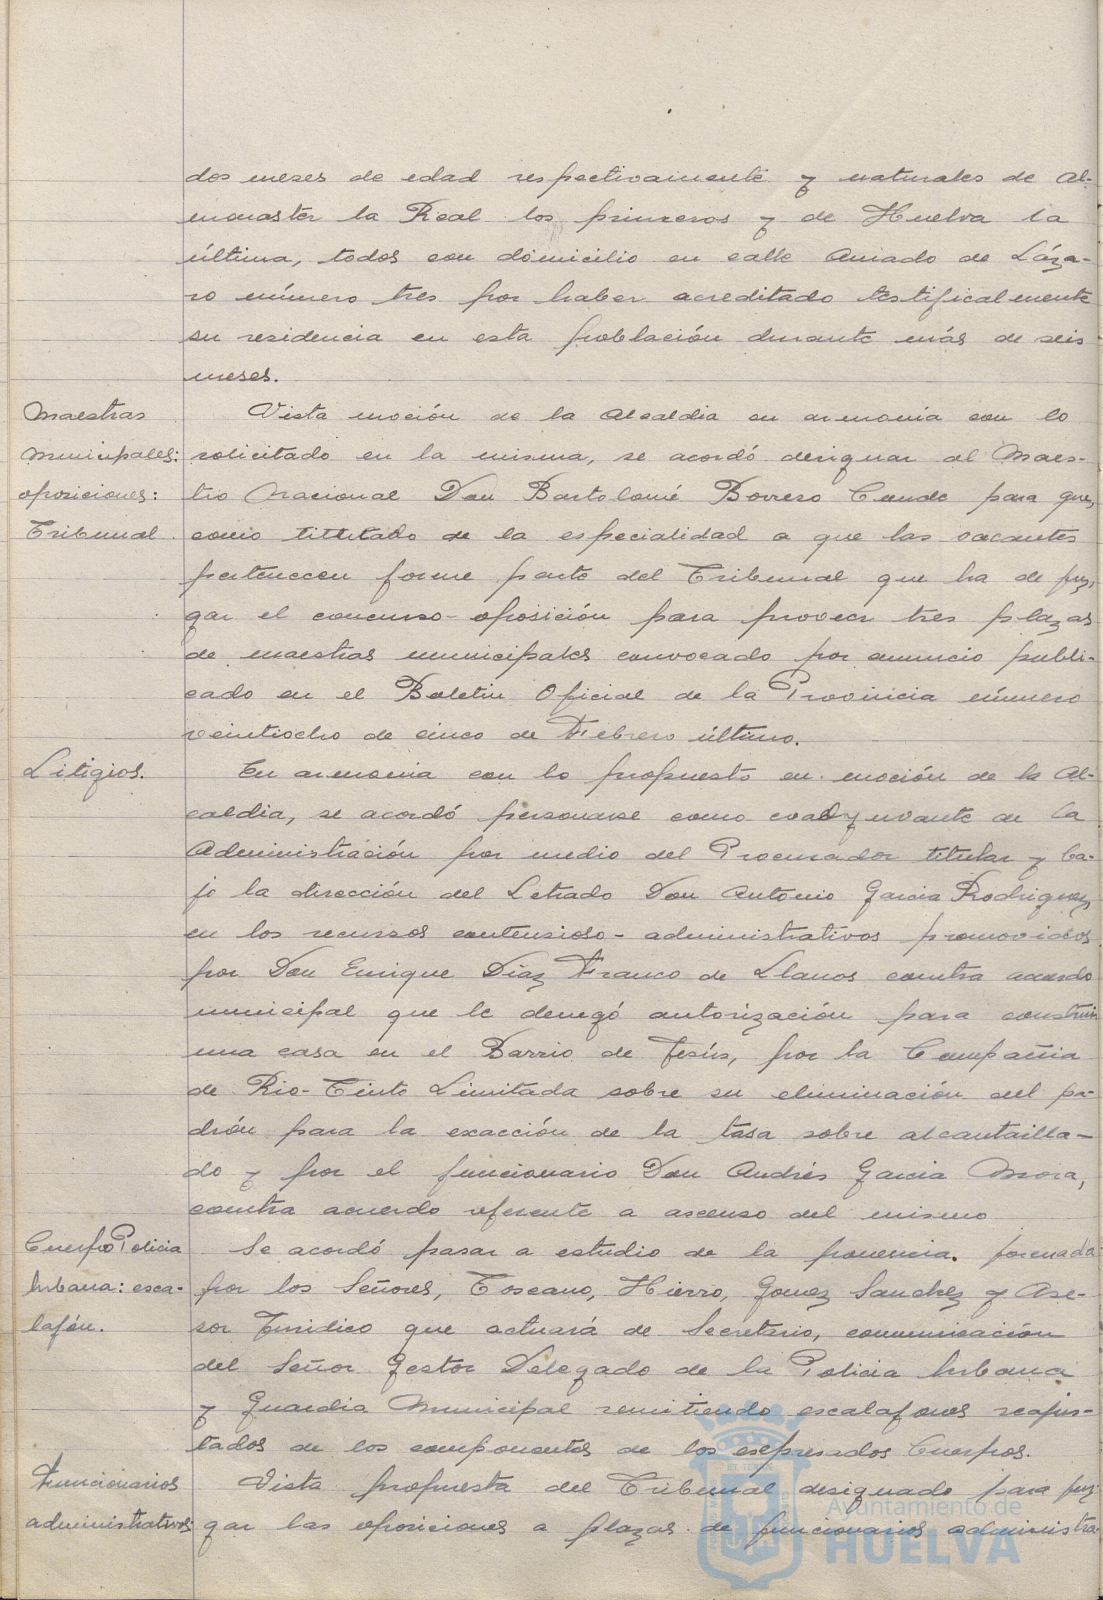 dos meses de edad respectivamente y naturales de Al-
monaster la Real los primeros y de Huelva la
última, todos con domicilio en calle Amado de Láza-
ro número tres por haber acreditado testificalmente
su residencia en esta población durante más de seis
meses.
Maestras
municipales:
oposiciones:
Tribunal
Vista moción de la Alcaldia en armonía con lo
solicitado en la misma, se acordó designar al Maes-
tro Nacional Don Bartolomé Borrero Conde para que,
como titulado de la especialidad a que las vacantes
pertenecen forme parte del Tribunal que ha de juz-
gar el concurso-oposición para proveer tres plazas
de maestras municipales convocado por anuncio publi-
cado en el Boletin Oficial de la Provincia número
veintiocho de cinco de Febrero último.
Litigios.
En armonia con lo propuesto en moción de la Al-
caldia, se acordó personarse como coadyuvante de la
Administración por medio del Procurador titular y ba-
jo la dirección del Letrado Don Antonio Garcia Rodriguez,
en los recursos contensioso-administrativos promovidos
por Don Enrique Diaz Franco de Llanos contra acuerdo
municipal que le denegó autorización para construir
una casa en el Barrio de Jesús, por la Compañia
de Rio-Tinto Limitada sobre su eliminación del pa-
drón para la exacción de la tasa sobre alcantarilla-
do y por el funcionario Don Andrés Garcia Mora,
contra acuerdo referente a ascenso del mismo
Cuerpo Policia
Urbana: esca-
lafón.
Se acordó pasar a estudio de la ponencia formada
por los Señores, Toscano, Hierro, Gomez Sanchez y Ase-
sor Juridico que actuará de Secretario, comunicación
del Señor Gestor Delegado de la Policia Urbana
y Guardia Municipal remitiendo escalafones reajus-
tados de los componentes de los expresados Cuerpos.
Funcionarios
administrativos
Vista propuesta del Tribunal designado para juz-
gar las oposiciones a plazas de funcionarios administra-
Ayuntamiento de
HUELVA